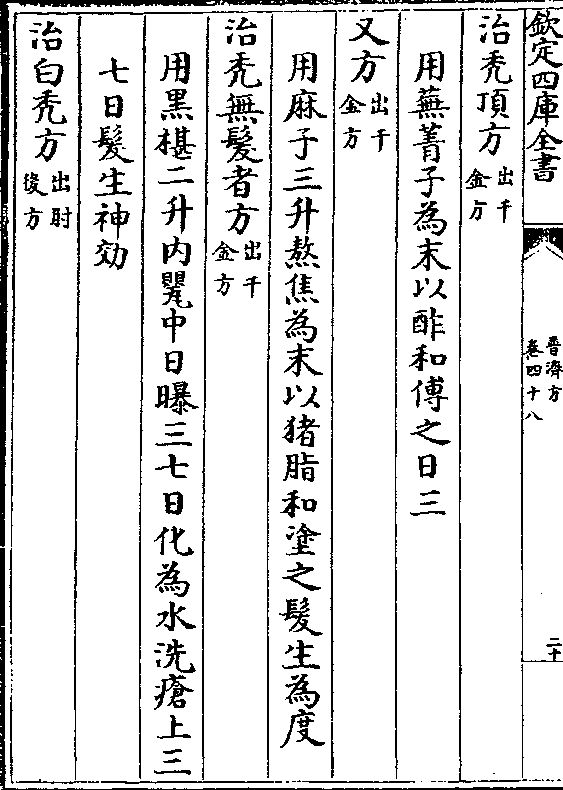 欽定四庫全書
普濟方
卷四十八
二十
治禿頂方出千金方
用蕪菁子為末以酢和傅之日三
又方出千金方
用麻子三升熬焦為末以猪脂和塗之髮生為度
治禿無髮者方出千金方
用黑椹二升內甖中日曝三七日化為水洗瘡上三
七日髮生神効
治白禿方出肘後方